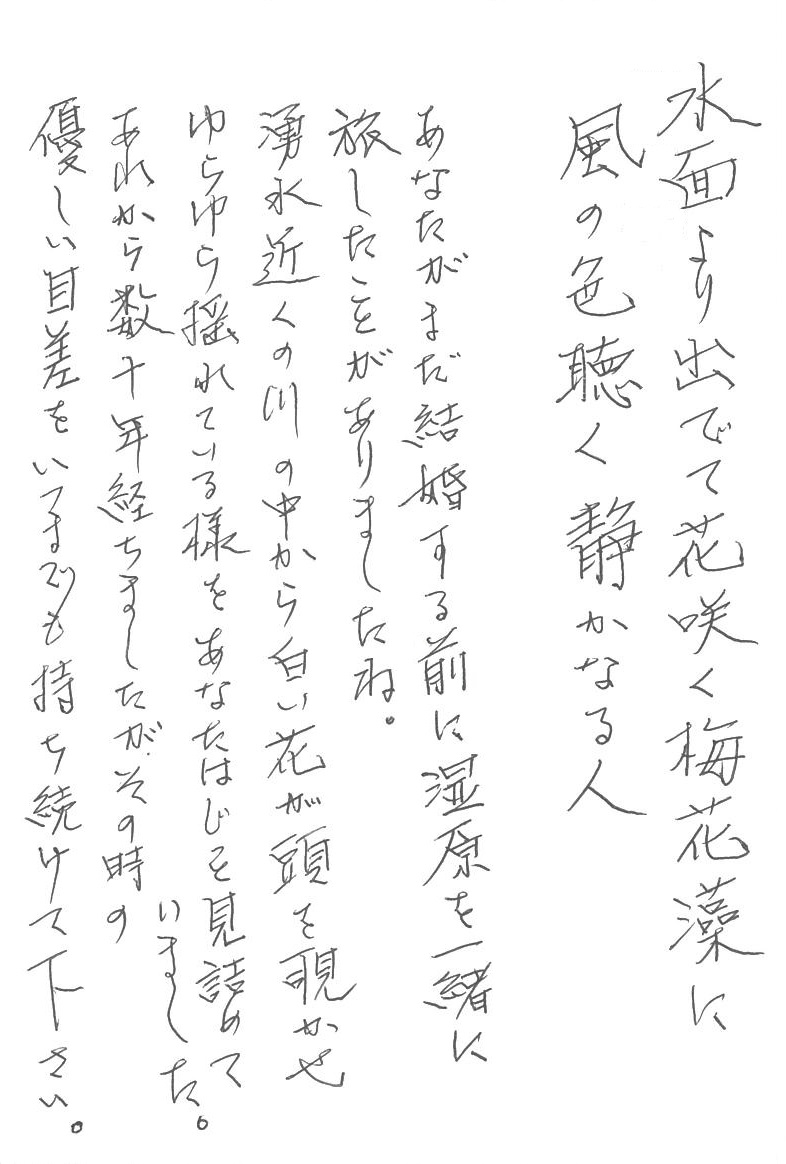 水面より出でて花咲く梅花藻に
風の色聴く静かなる人
あなたがまだ結婚する前に湿原を一緒に
旅したことがありましたね。
湧水近くの川の中から白い花が頭を覗かせ
ゆらゆら揺れている様をあなたはじっと見詰めて
いました。
あれから数十年経ちましたが、その時の
優しい目差をいつまでも持ち続けて下さい。